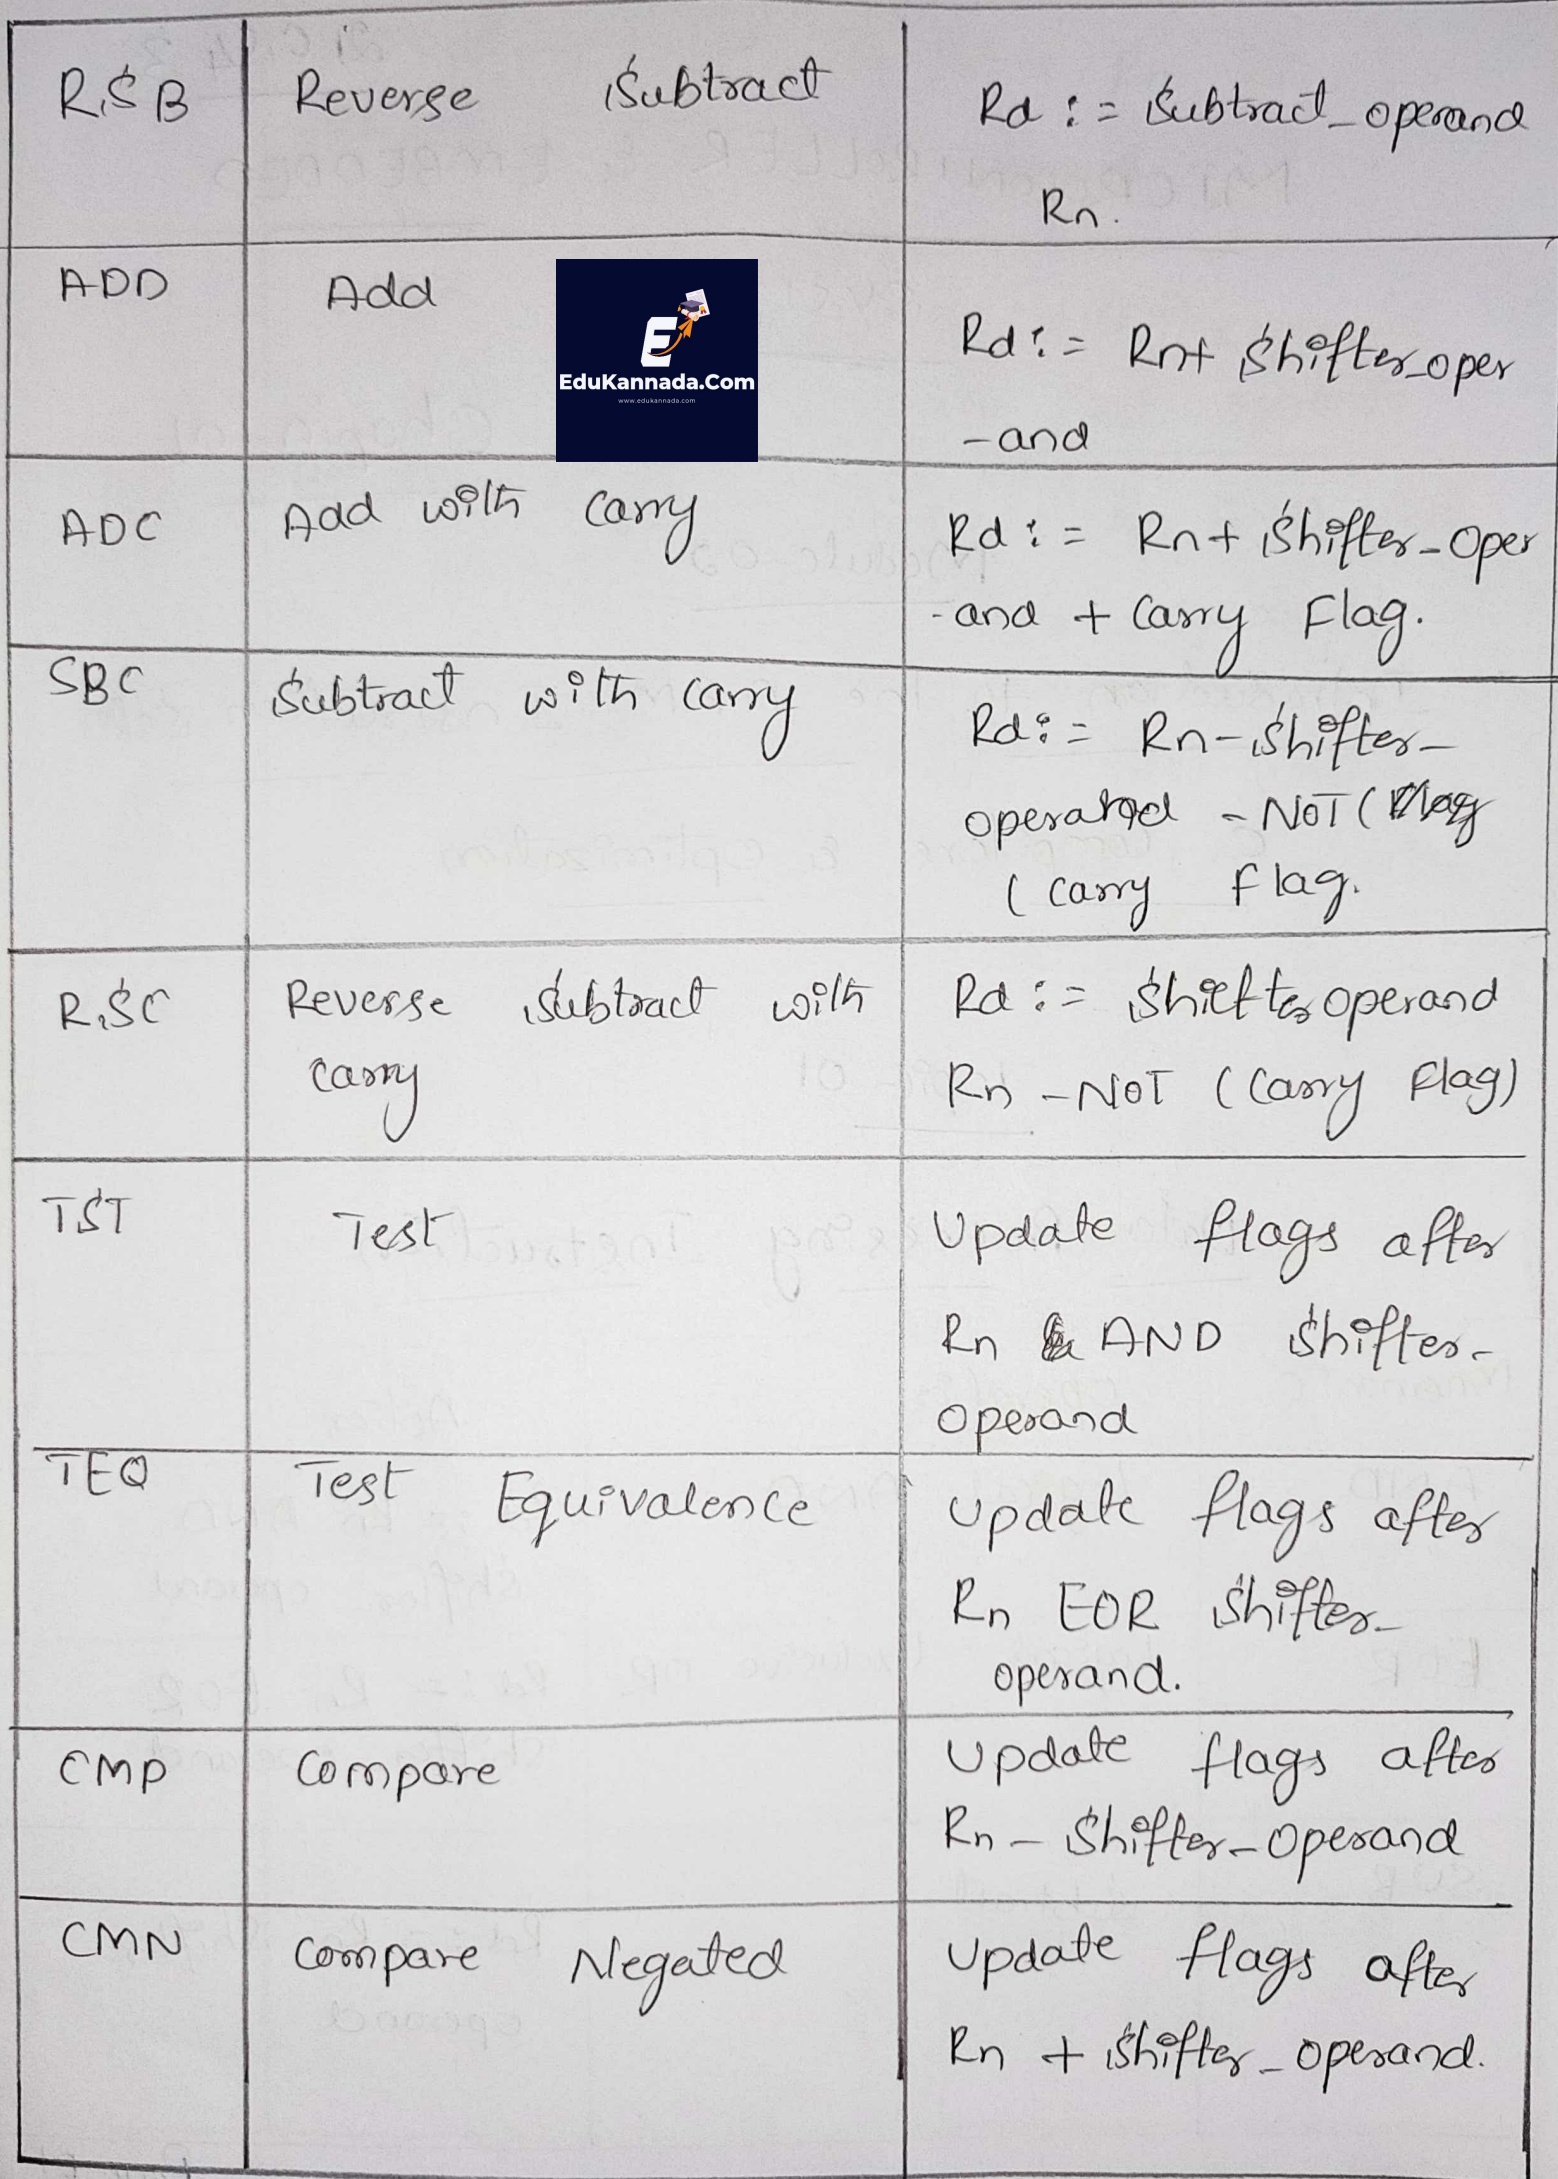 RSB Reverse Subtract Rd := Subtract_operand
Rn.
ADD Add Rd := Rn+ Shifter_oper
-and
E
EduKannada.Com
www.edukannada.com
ADC Add with Carry Rd := Rn + Shifter_oper
-and + Carry Flag.
SBC Subtract with carry Rd := Rn - Shifter_
- NOT (
( Carry Flag.
RSC Reverse Subtract with Rd := Shifter operand
carry Rn - NOT (Carry Flag)
TST Test Update flags after
Rn AND Shifter-
operand
TEQ Test Equivalence Update flags after
Rn EOR Shifter_
operand.
CMP Compare Update flags after
Rn - Shifter_operand
CMN Compare Negated Update flags after
Rn + Shifter_operand.